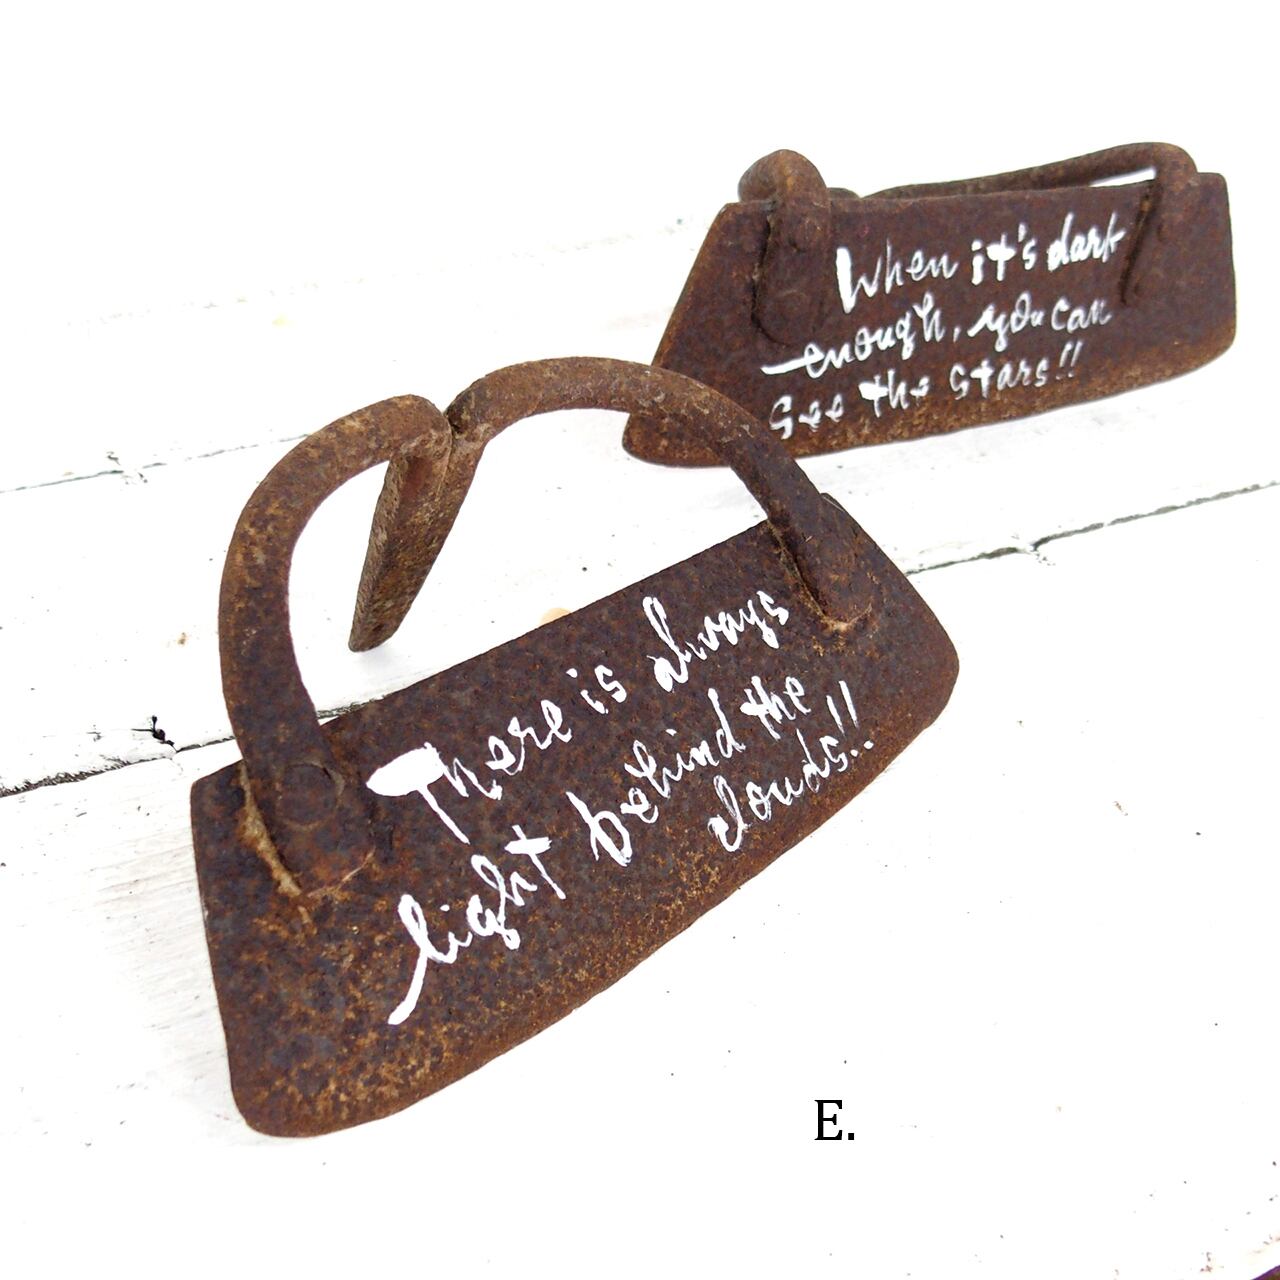 When it's dark
enough, you can
See the stars!!
There is always
light behind the
clouds!!
E.